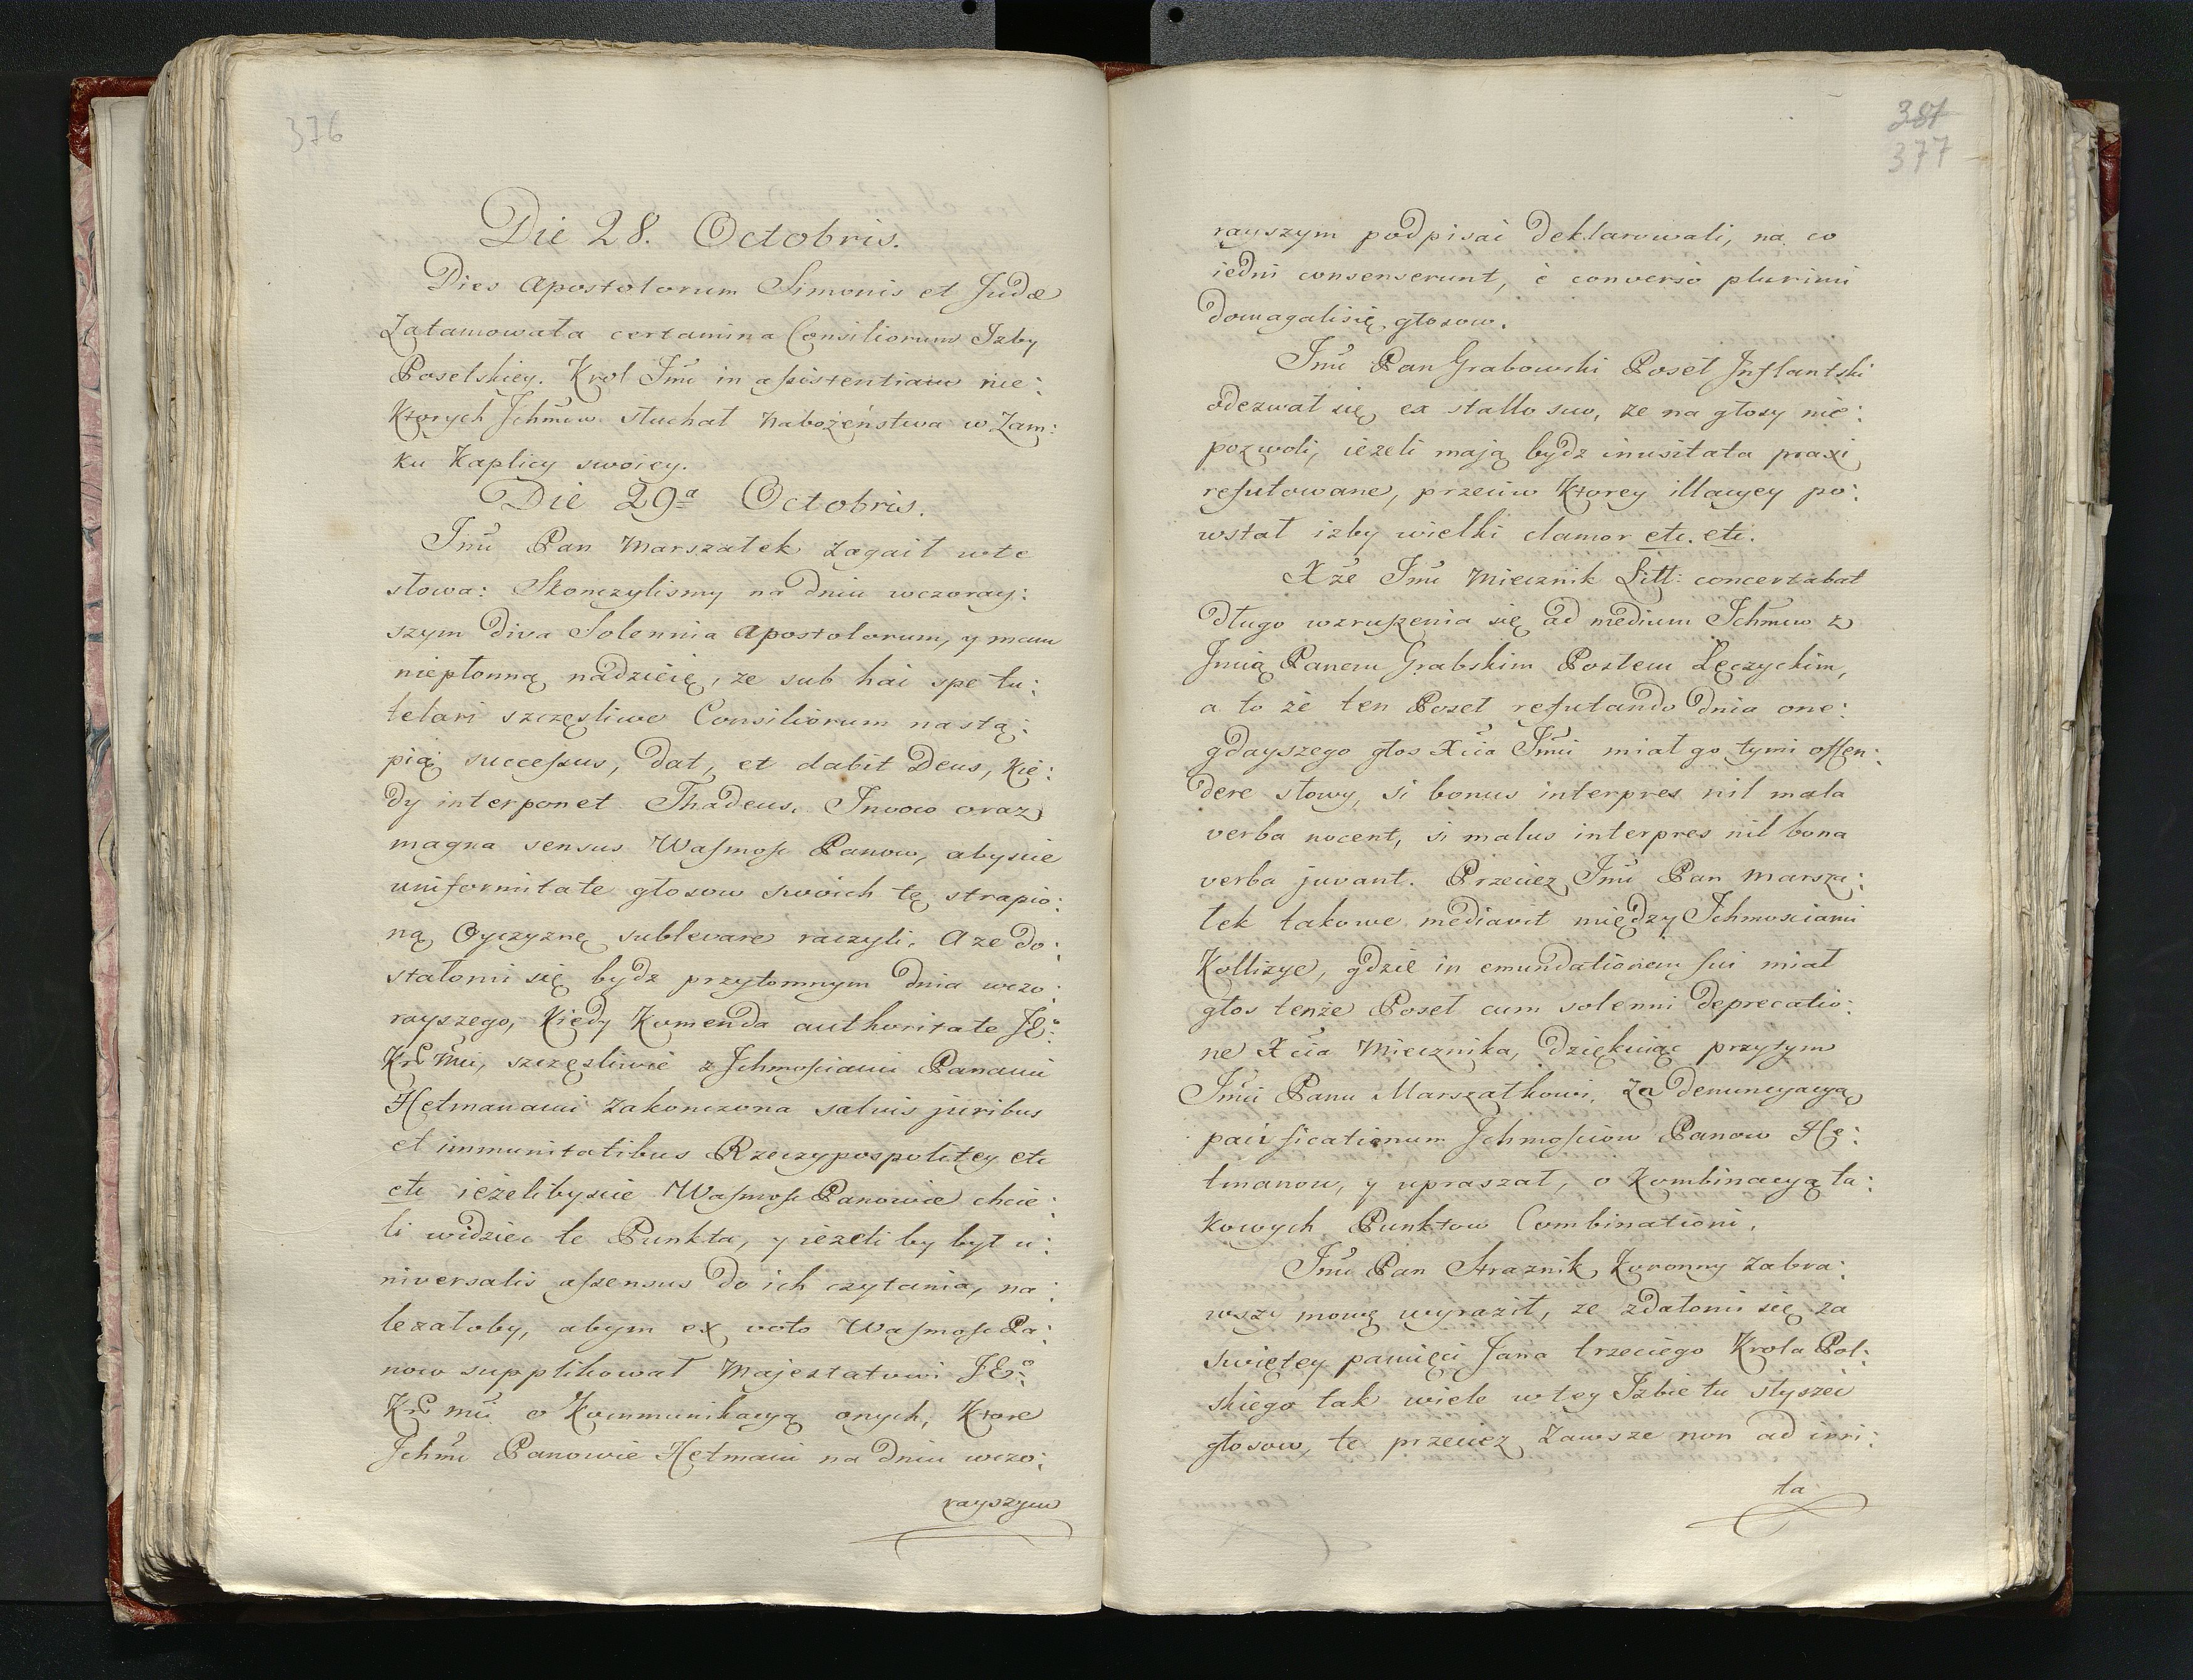 376
Die 28. Octobris.
Dies Apostolorum Simonis et Judæ
Zatamowała certamina Consiliorum Izby
Poselskiey. Krol Jmć in assistentiam nie:
ktorych Jchmćw słuchał Nabożeństwa w Zam:
ku Kaplicy swoiey.
Die 29ª Octobris.
Jmć Pan Marszałek zagaił w te
słowa: Skonczylismy na dniu wczoray:
szym diva Solennia Apostolorum, y mam
niepłonną nadzieię, ze sub hac spe tu:
telari szczęsliwe Consiliorum nastą:
pią successus, dat, et dabit Deus, kie:
dy interponet Thadeus. Invoco oraz
magna sensus Wasmość Panow, abyscie
uniformitate głosow swoich tę strapio:
ną Oyczyznę sublevare raczyli. A ze do:
stałomi się bydz przytomnym dnia wczo:
rayszego, kiedy Komenda authoritate JE:
Kr Mci, szczęsliwie z Jchmościami Panami
Hetmanami Zakonczona salvis juribus
et immunitatibus Rzeczypospolitey etc
etc ieżelibyscie Wasmość Panowie chcie:
li widziec te Punkta, y ieżeli by był u:
niversalis assensus do ich czytania, na:
leżałoby, abym ex voto Wasmość Pa:
now supplikował Majestatowi JE:
Kr mci o Kommunikacyą onych, Ktore
Jchmć Panowie Hetmani na dniu wczo:
rayszym
381
377
rayszym podpisać deklarowali, na co
iedni consenserunt, è conversò plurimi
domagalisię głosow.
Jmć Pan Grabowski Poseł Jnflantski
odezwał się ex stallo suo, ze na głosy nie:
pozwoli, ieżeli mają bydz inusitata praxi
refutowane, przeciw Ktorey illacyey po:
wstał izby wielki clamor etc. etc.
Xże Jmć Miecznik Litt: concertabat
długo wzruszenia się ad medium Jchmćw z
Jmcią Panem Grabskim Posłem Lęczyckim,
a to że ten Poseł refutando dnia one:
gdayszego głos Xcia Jmći miał go tymi offen:
dere słowy, si bonus interpres nil mala
verba nocent, si malus interpres nil bona
verba juvant. Przeciez Jmć Pan Marsza:
łek takowe mediavit między Jchmosciami
Kollizye, gdzie in emundationem sui miał
głos tenże Poseł cum solenni deprecatio:
ne Xcia Miecznika, dziękuiąc przytym
Jmći Panu Marszałkowi, za denuncyacyą
pacificationum Jchmościow Panow He:
tmanow, y upraszał, o Kombinacyą ta:
kowych Punktow Combinationi.
Jmć Pan Straznik Koronny zabra:
wszy mowę wyraził, ze zdałomi się za
swiętey pamięci Jana trzeciego Krola Pol:
skiego tak wiele w tey Izbie tu słyszeć
głosow, te przeciez Zawsze non ad irri:
ta